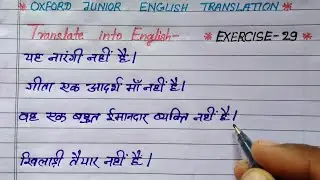 * OXFORD JUNIOR ENGLISH TRANSLATION *
Translate into English- * EXERCISE-29 *
यह नारंगी नहीं है।
गीता एक आदर्श माँ नहीं है।
वह एक बहुत ईमानदार व्यक्ति नहीं है।
खिलाड़ी तैयार नहीं है।